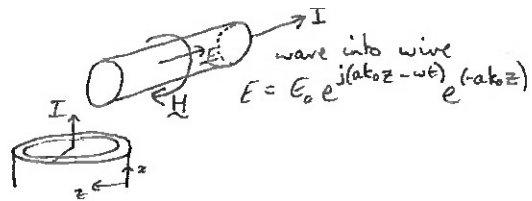 I
E
wave into wire
H
E = E₀ e^{j(ak₀z - ωt)} e^{(-ak₀z)}
I
z
x